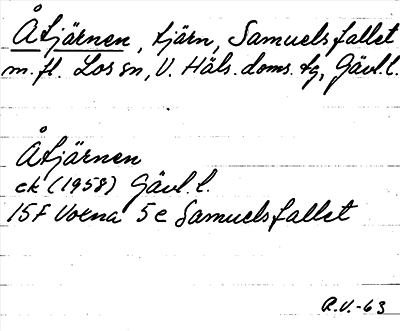 Åtjärnen, tjärn, Samuelsfallet
m.fl. Los sn, V. Häls. doms. tg, Gävl.l.
Åtjärnen
ek (1958) Gävl.l.
15F Voxna 5e Samuelsfallet
R.V.-63